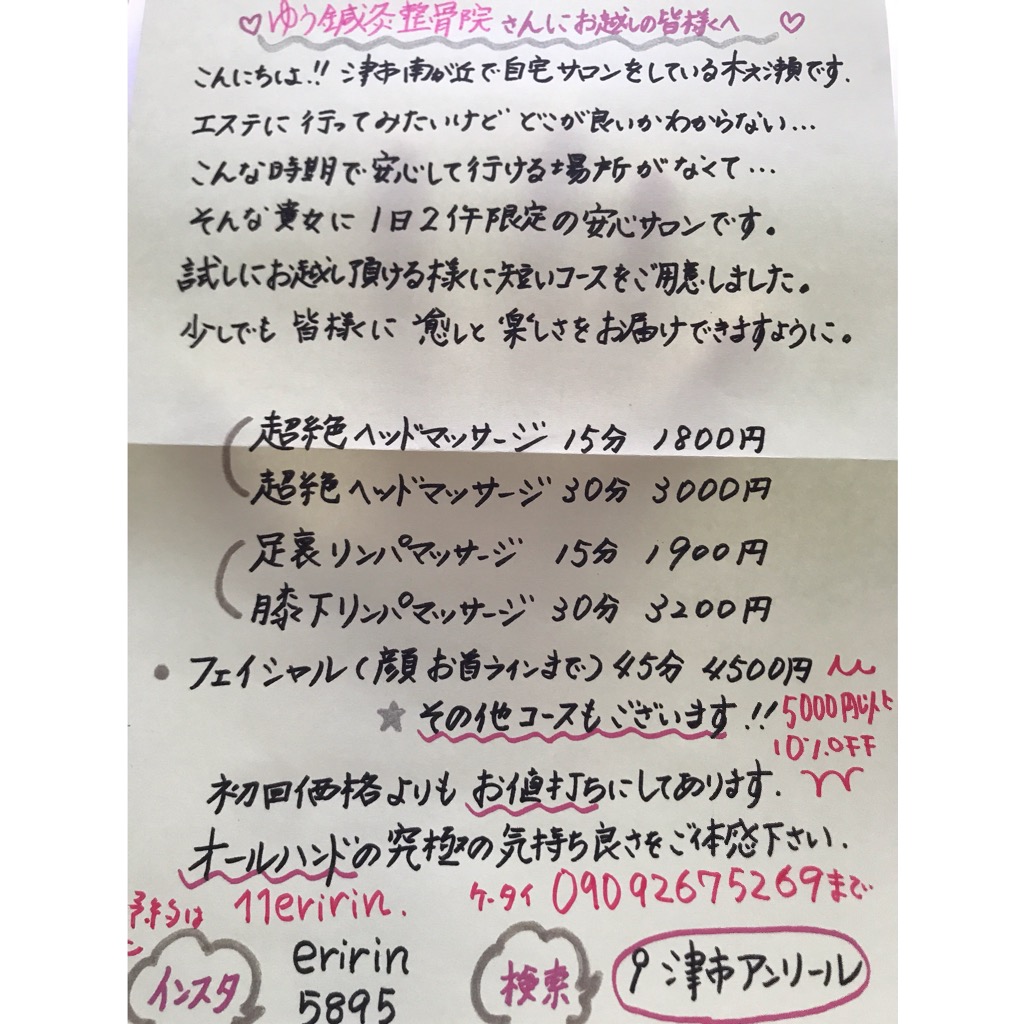 ♡ゆう鍼灸整骨院さんにお越しの皆様へ♡
こんにちは!! 津市南が丘で自宅サロンをしている木大瀬です.
エステに行ってみたいけど どこが良いかわからない…
こんな時期で安心して行ける場所がなくて…
そんな貴女に1日2件限定の安心サロンです。
試しにお越し頂ける様に短いコースをご用意しました。
少しでも皆様に癒しと楽しさをお届けできますように。
超絶ヘッドマッサージ 15分 1800円
超絶ヘッドマッサージ 30分 3000円
足裏リンパマッサージ 15分 1900円
膝下リンパマッサージ 30分 3200円
• フェイシャル(顔お首ラインまで)45分 4500円
★その他コースもございます!!
5000円以上
10%OFF
初回価格よりもお値打ちにしてあります.
オールハンドの究極の気持ち良さをご体感下さい.
11eririn.
ケータイ 09092675269まで
インスタ
eririn
5895
検索
津市アンリール